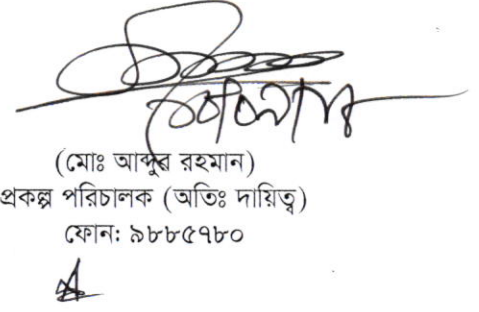 (মোঃ আব্দুর রহমান)
প্রকল্প পরিচালক (অতিঃ দায়িত্ব)
ফোন: ৯৮৮৫৭৮০